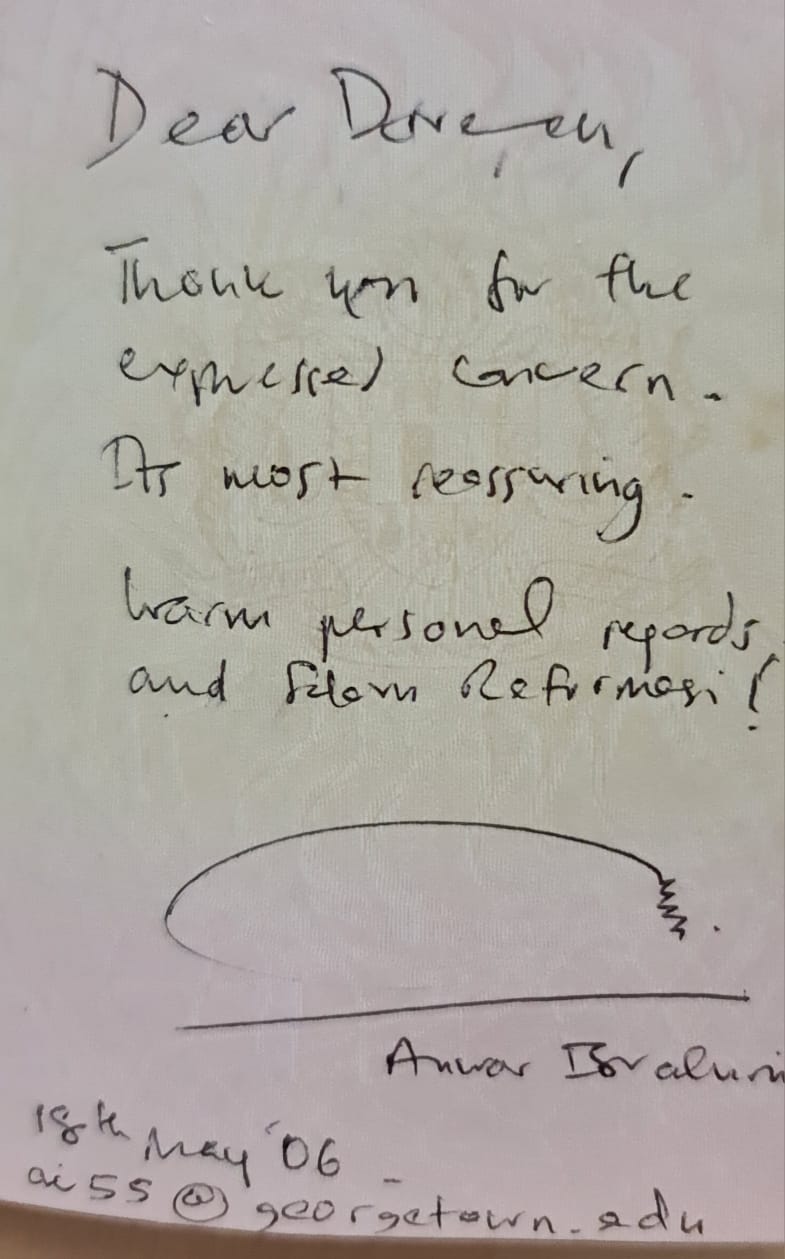 Dear
Thank you for the
expressed concern.
Its most reassuring.
Warm personal regards,
and Salam Reformasi!
Anwar Ibrahim
18th May '06
ai55@georgetown.edu